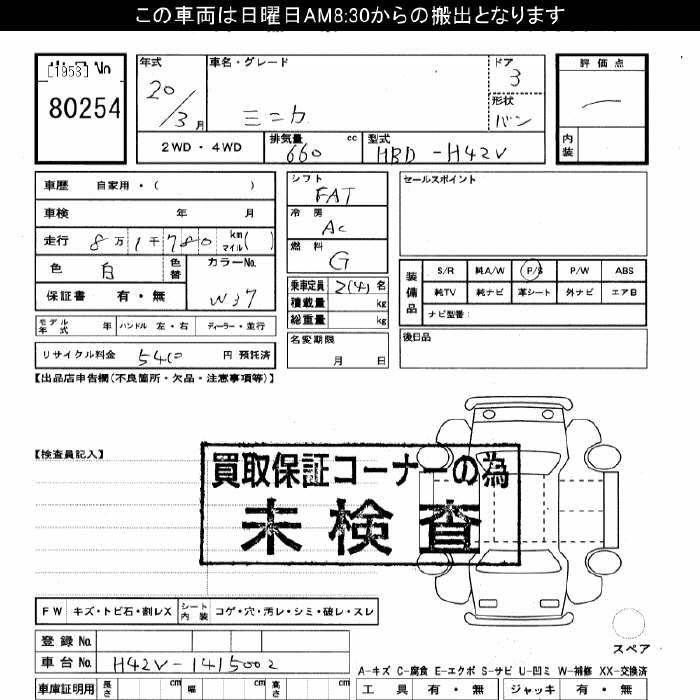 この車両は日曜日AM8:30からの搬出となります
[1953]
80254
年式
20/3月
車名・グレード
ミニカ
ドア
3
形状
バン
評価点
内装
2WD・4WD
排気量
660 cc
型式
HBD-H42V
車歴 自家用・( )
車検 年 月
走行 8万1千780 km マイル( )
色 白 色替
カラーNo.
W37
保証書 有・無
モデル年式 年 ハンドル 左・右 ディーラー・並行
リサイクル料金 5410 円 預託済
シフト
FAT
冷房
AC
燃料
G
乗車定員 2(4)名
積載量 kg
総重量 kg
名変期限
月 日
セールスポイント
装備品
S/R 純A/W P/S P/W ABS
純TV 純ナビ 革シート 外ナビ エアB
ナビ型番:
後日品
【出品店申告欄(不良箇所・欠品・注意事項等)】
【検査員記入】
買取保証コーナーの為
未検査
FW キズ・トビ石・割レX シート内装 コゲ・穴・汚レ・シミ・破レ・スレ
スペア
登録No.
車台No. H42V-1415002
A-キズ C-腐食 E-エクボ S-サビ U-凹ミ W-補修 XX-交換済
車庫証明用 長さ cm 幅 cm 高さ cm
工具 有・無 ジャッキ 有・無